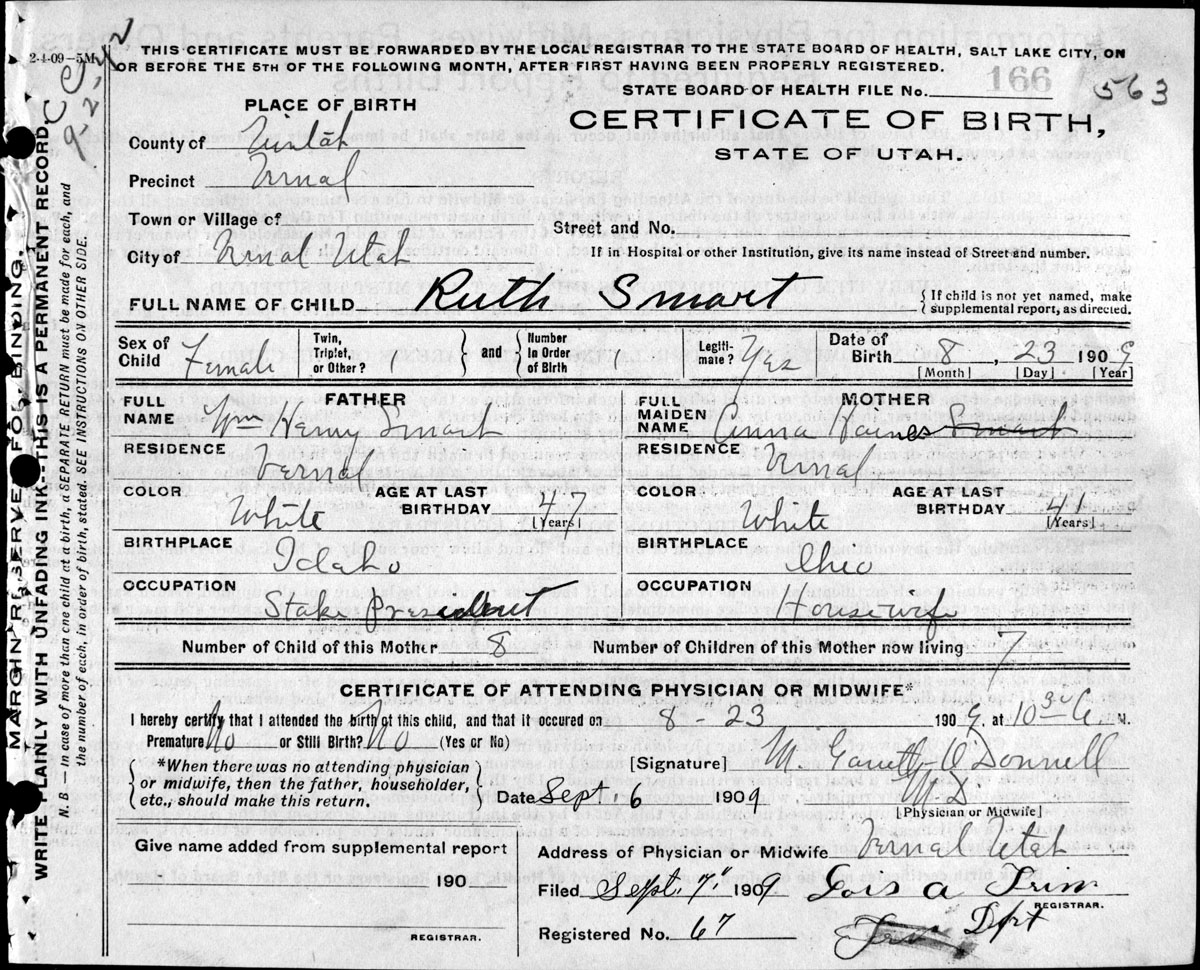 2-4-09-5M
THIS CERTIFICATE MUST BE FORWARDED BY THE LOCAL REGISTRAR TO THE STATE BOARD OF HEALTH, SALT LAKE CITY, ON
OR BEFORE THE 5TH OF THE FOLLOWING MONTH, AFTER FIRST HAVING BEEN PROPERLY REGISTERED.
166
563
STATE BOARD OF HEALTH FILE No.
PLACE OF BIRTH
CERTIFICATE OF BIRTH,
STATE OF UTAH.
County of Uintah
Precinct Vernal
Town or Village of
Street and No.
City of Vernal Utah
If in Hospital or other Institution, give its name instead of Street and number.
FULL NAME OF CHILD Ruth Smart
{ If child is not yet named, make
supplemental report, as directed.
Sex of Child Female
Twin, Triplet, or Other? 1 } and { Number In Order of Birth 1
Legiti-mate? Yes
Date of Birth 8, 23 1909
[Month] [Day] [Year]
FATHER
FULL NAME Wm Henry Smart
MOTHER
FULL MAIDEN NAME Anna Haines Smart
RESIDENCE Vernal
RESIDENCE Vernal
COLOR White
AGE AT LAST BIRTHDAY 47 [Years]
COLOR White
AGE AT LAST BIRTHDAY 41 [Years]
BIRTHPLACE Idaho
BIRTHPLACE Ohio
OCCUPATION Stake president
OCCUPATION Housewife
Number of Child of this Mother 8
Number of Children of this Mother now living 7
CERTIFICATE OF ATTENDING PHYSICIAN OR MIDWIFE*
I hereby certify that I attended the birth of this child, and that it occured on 8-23 1909, at 10 30 A M.
Premature No or Still Birth? No (Yes or No)
{ *When there was no attending physician
or midwife, then the father, householder,
etc., should make this return. }
[Signature] M. Garrett O'Donnell
M.D.
[Physician or Midwife]
Date Sept. 6 1909
Give name added from supplemental report
190
REGISTRAR.
Address of Physician or Midwife Vernal Utah
Filed Sept. 7" 1909
Lois A
REGISTRAR.
Registered No. 67
Dpt
MARGIN RESERVE FOR BINDING.
WRITE PLAINLY WITH UNFADING INK--THIS IS A PERMANENT RECORD.
N. B — In case of more than one child at a birth, a SEPARATE RETURN must be made for each, and
the number of each, in order of birth, stated. SEE INSTRUCTIONS ON OTHER SIDE.